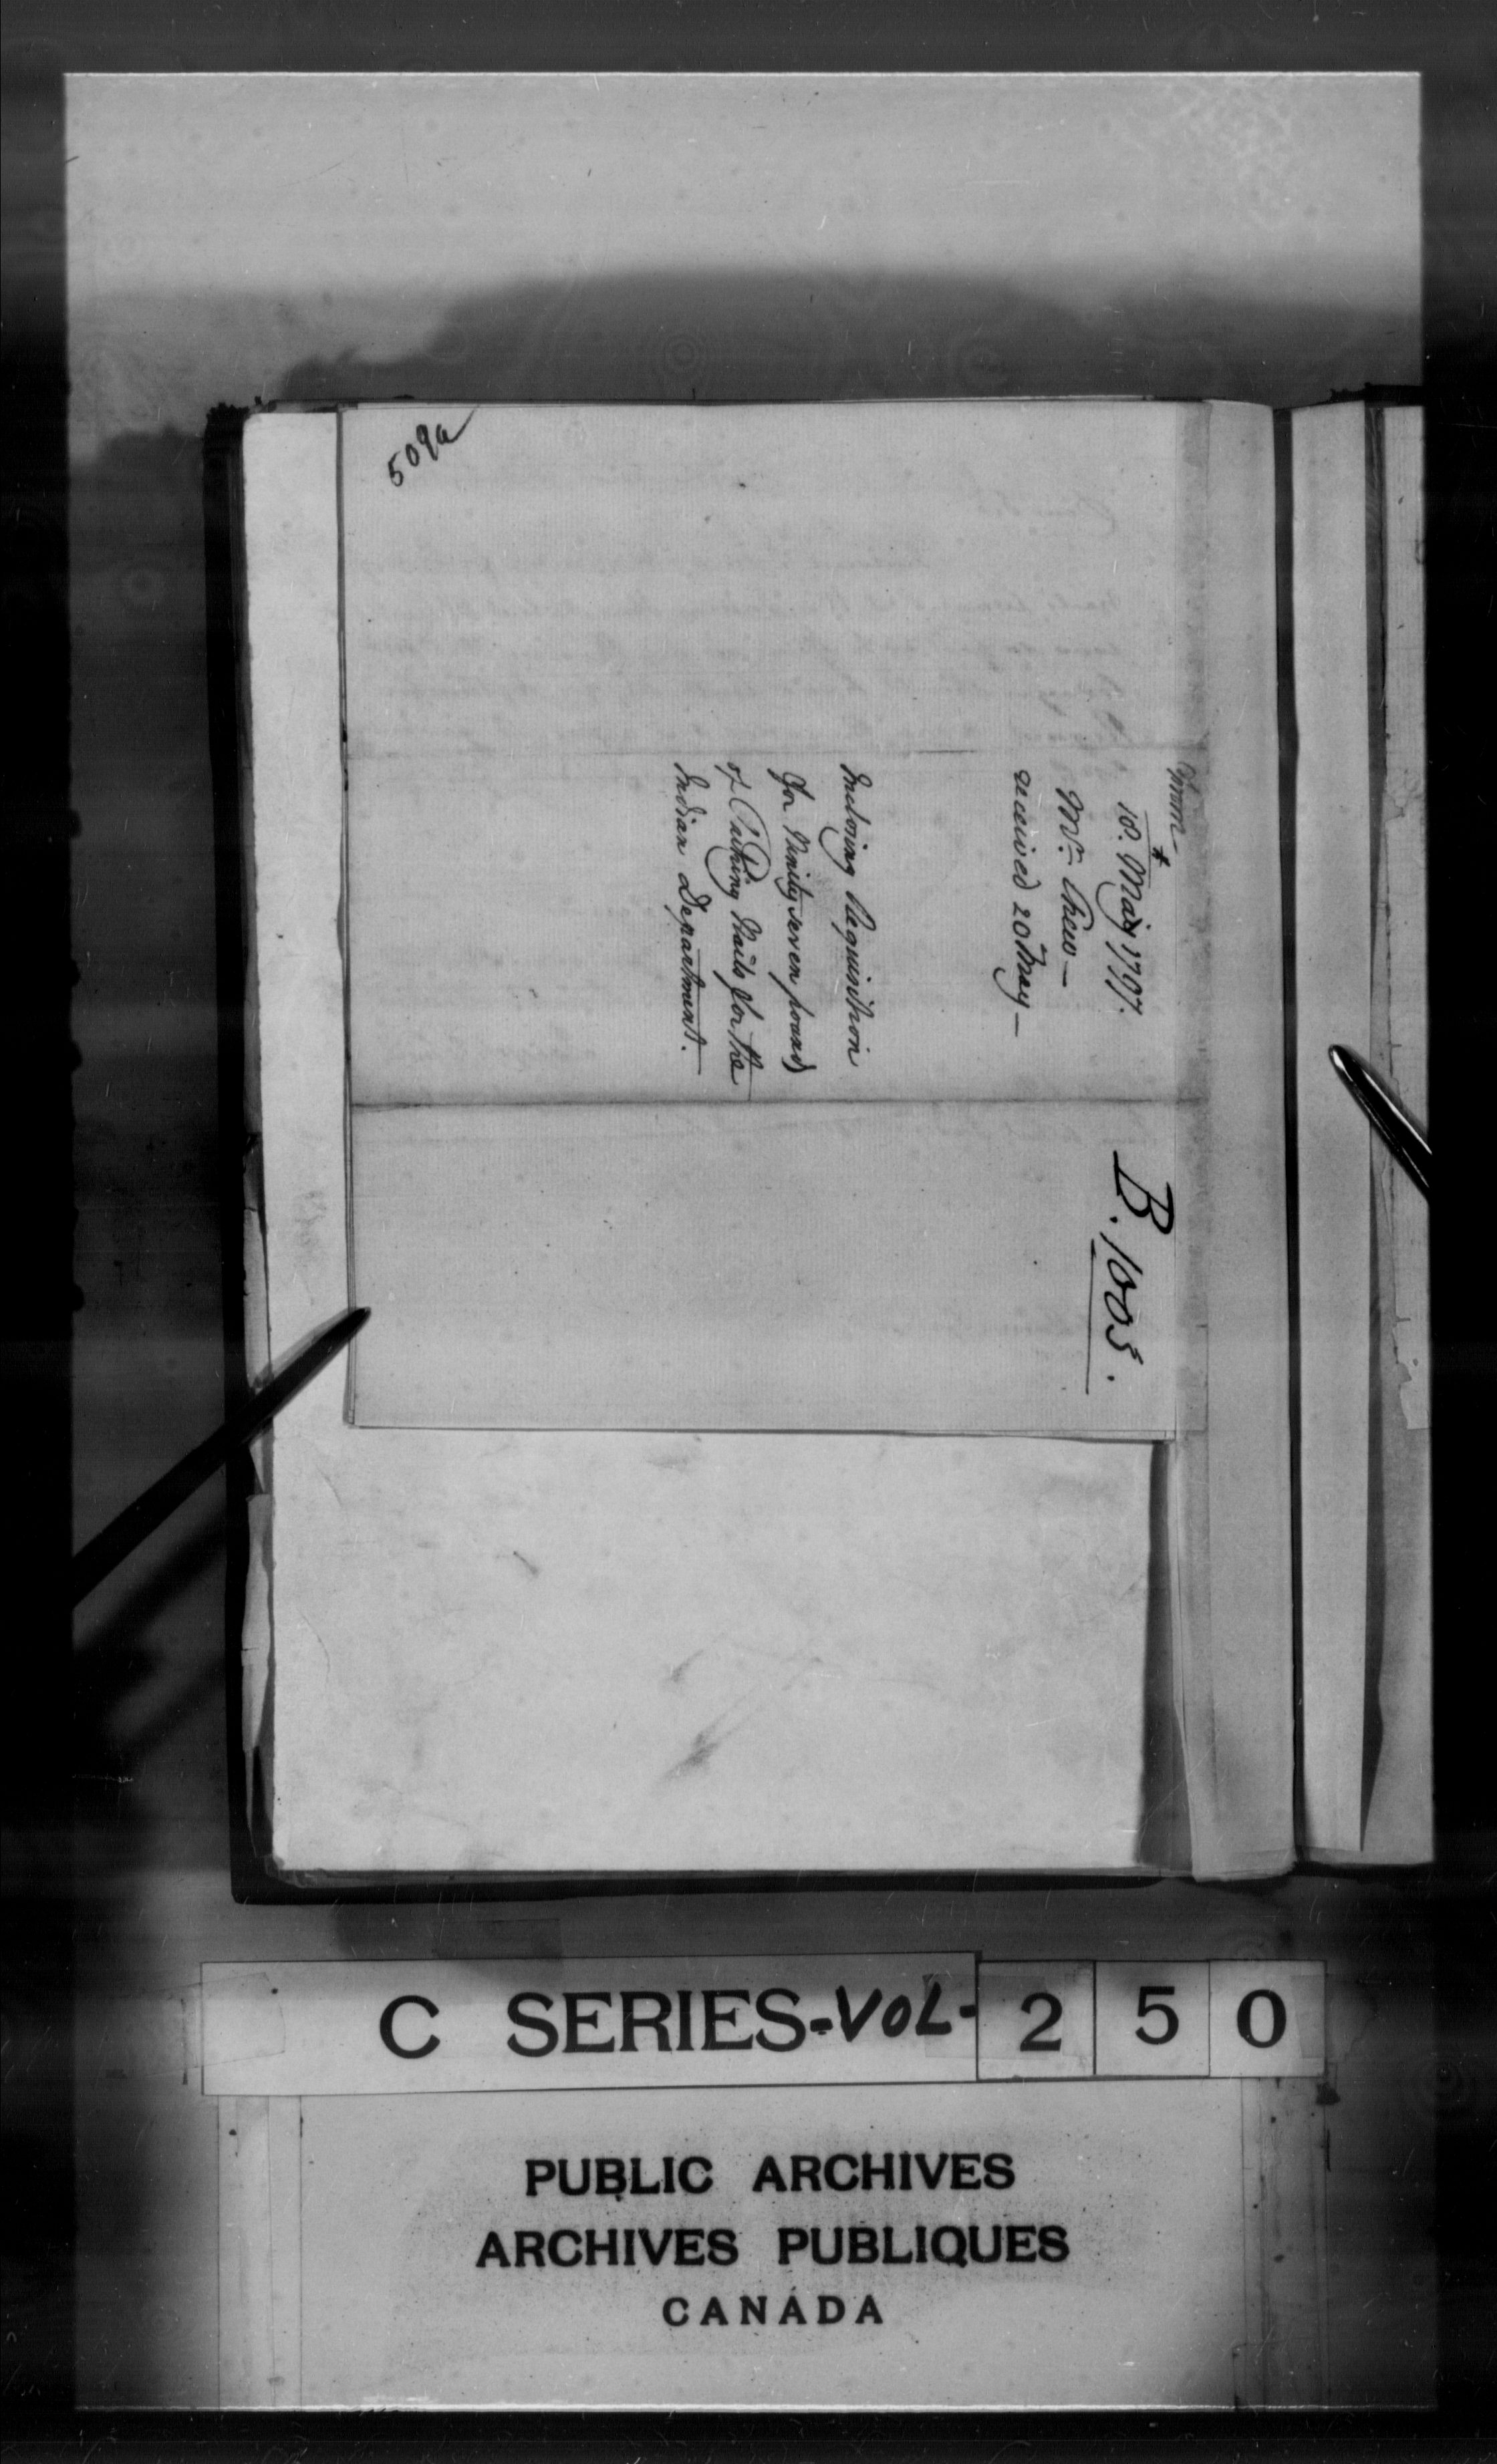 509a
18. May 1797.
Mr. Chew —
received 20 May —
Inclosing Requisition
for Ninety seven pounds
of Packing Nails for the
Indian Department.
B. 1003.
C SERIES-VOL- 2 5 0
PUBLIC ARCHIVES
ARCHIVES PUBLIQUES
CANADA